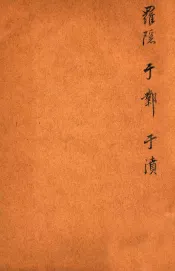 羅隱 于鄴 于濆